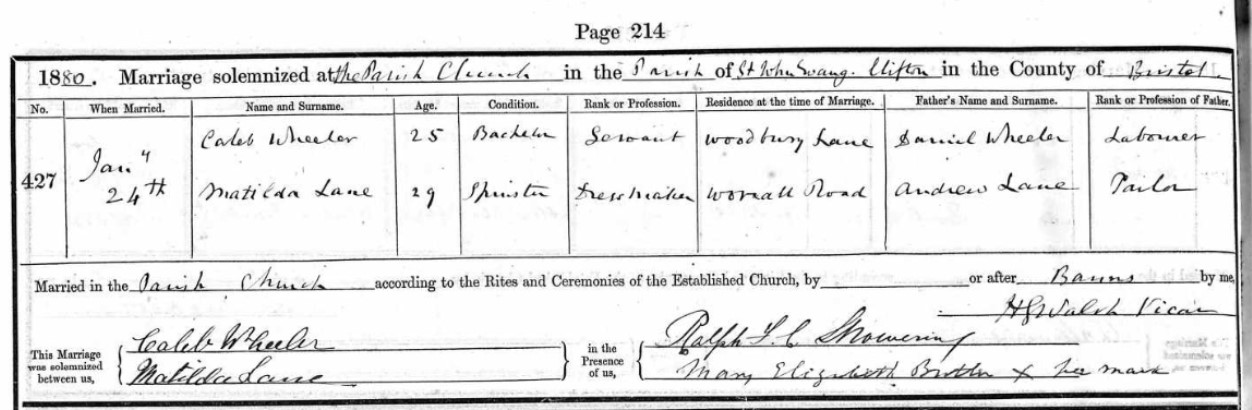 Page 214
1880. Marriage solemnized at the Parish Church in the Parish of St John Evang. Clifton in the County of Bristol.
No. When Married. Name and Surname. Age. Condition. Rank or Profession. Residence at the time of Marriage. Father's Name and Surname. Rank or Profession of Father.
427 Jany 24th
Caleb Wheeler 25 Bachelor Servant Woodbury Lane Daniel Wheeler Labourer
Matilda Lane 29 Spinster Dressmaker Worrall Road Andrew Lane
Married in the Parish Church according to the Rites and Ceremonies of the Established Church, by or after Banns by me,
H G Walsh Vicar
This Marriage was solemnized between us,
Caleb Wheeler
Matilda Lane
in the Presence of us,
Ralph Showering
Mary Elizabeth X her mark